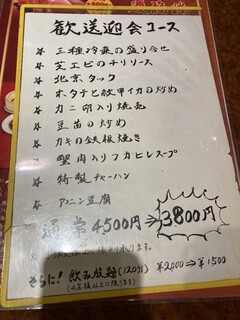 歓送迎会コース
三種冷菜の盛り合せ
芝エビのチリソース
北京ダック
ホタテと紋甲イカの炒め
カニ卵入り焼売
豆苗の炒め
カキの鉄板焼き
蟹肉入りフカヒレスープ
特製チャーハン
アンニン豆腐
通常4500円⇒3800円
さらに!飲み放題(120分) ¥2000⇒¥1500
(4名様以上に限ります)